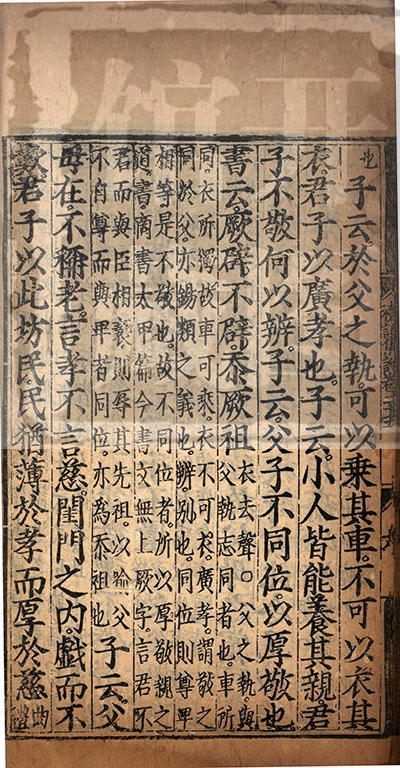 也 子云。於父之執。可以乘其車。不可以衣其
衣。君子以廣孝也。子云。小人皆能養其親君
子不敬。何以辨。子云。父子不同位。以厚敬也。
書云。厥辟不辟。忝厥祖
衣去聲○父之執與
父執志同者也。車所
同。衣所獨。故車可乘。衣不可衣。廣孝。謂敬之
同於父。亦錫類之義也。辨。別也。同位則尊卑
相等。是不敬也。故不同位者。所以厚敬親之
道。書商書太甲篇。今書文無上厥字。言君不
君而與臣相褻。則辱其先祖。以喻父
不自尊而與卑者同位。亦為忝祖也
子云。父
母在不稱老。言孝不言慈。閨門之内。戲而不
歎。君子以此坊民。民猶薄於孝而厚於慈
曲禮